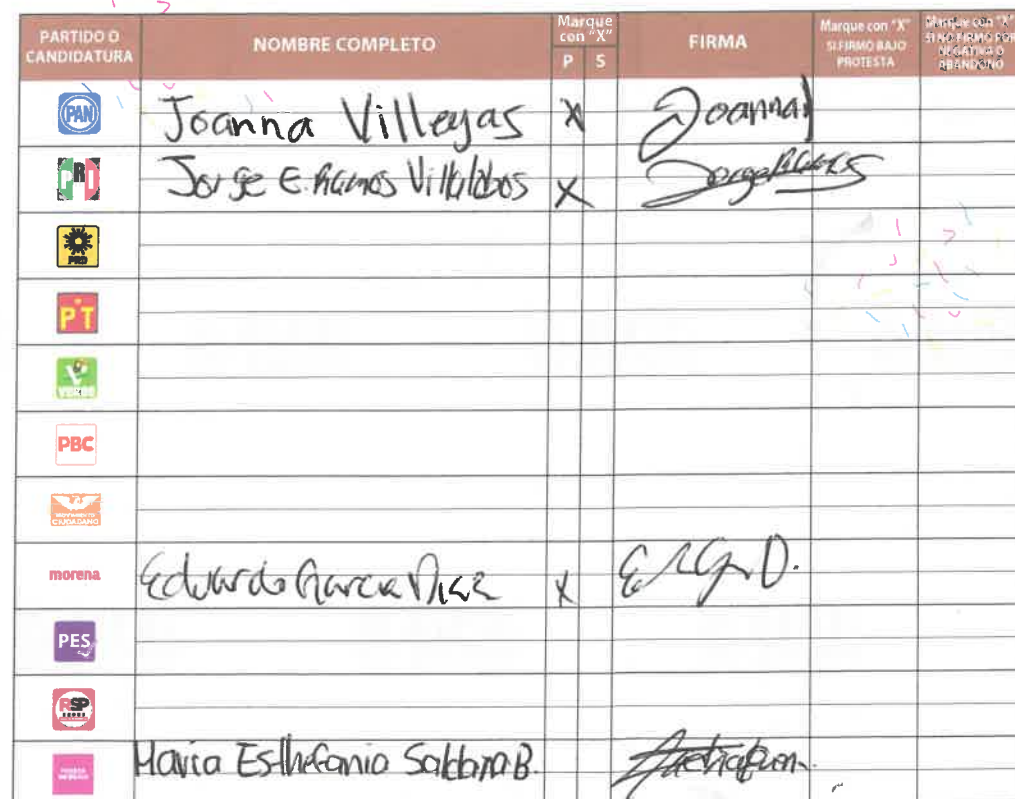 PARTIDO O CANDIDATURA
NOMBRE COMPLETO
Marque con "X"
P S
FIRMA
Marque con "X" SI FIRMÓ BAJO PROTESTA
Marque con "X" SI NO FIRMÓ POR NEGATIVA O ABANDONO
PAN Joanna Villegas X Joanna
PRI Jorge E. Ramos Villalobos X Jorge Ramos
PRD
PT
VERDE
PBC
MOVIMIENTO CIUDADANO
morena Eduardo Garcia Diaz X
PES
RSP
Maria Esthefania Saldana B.